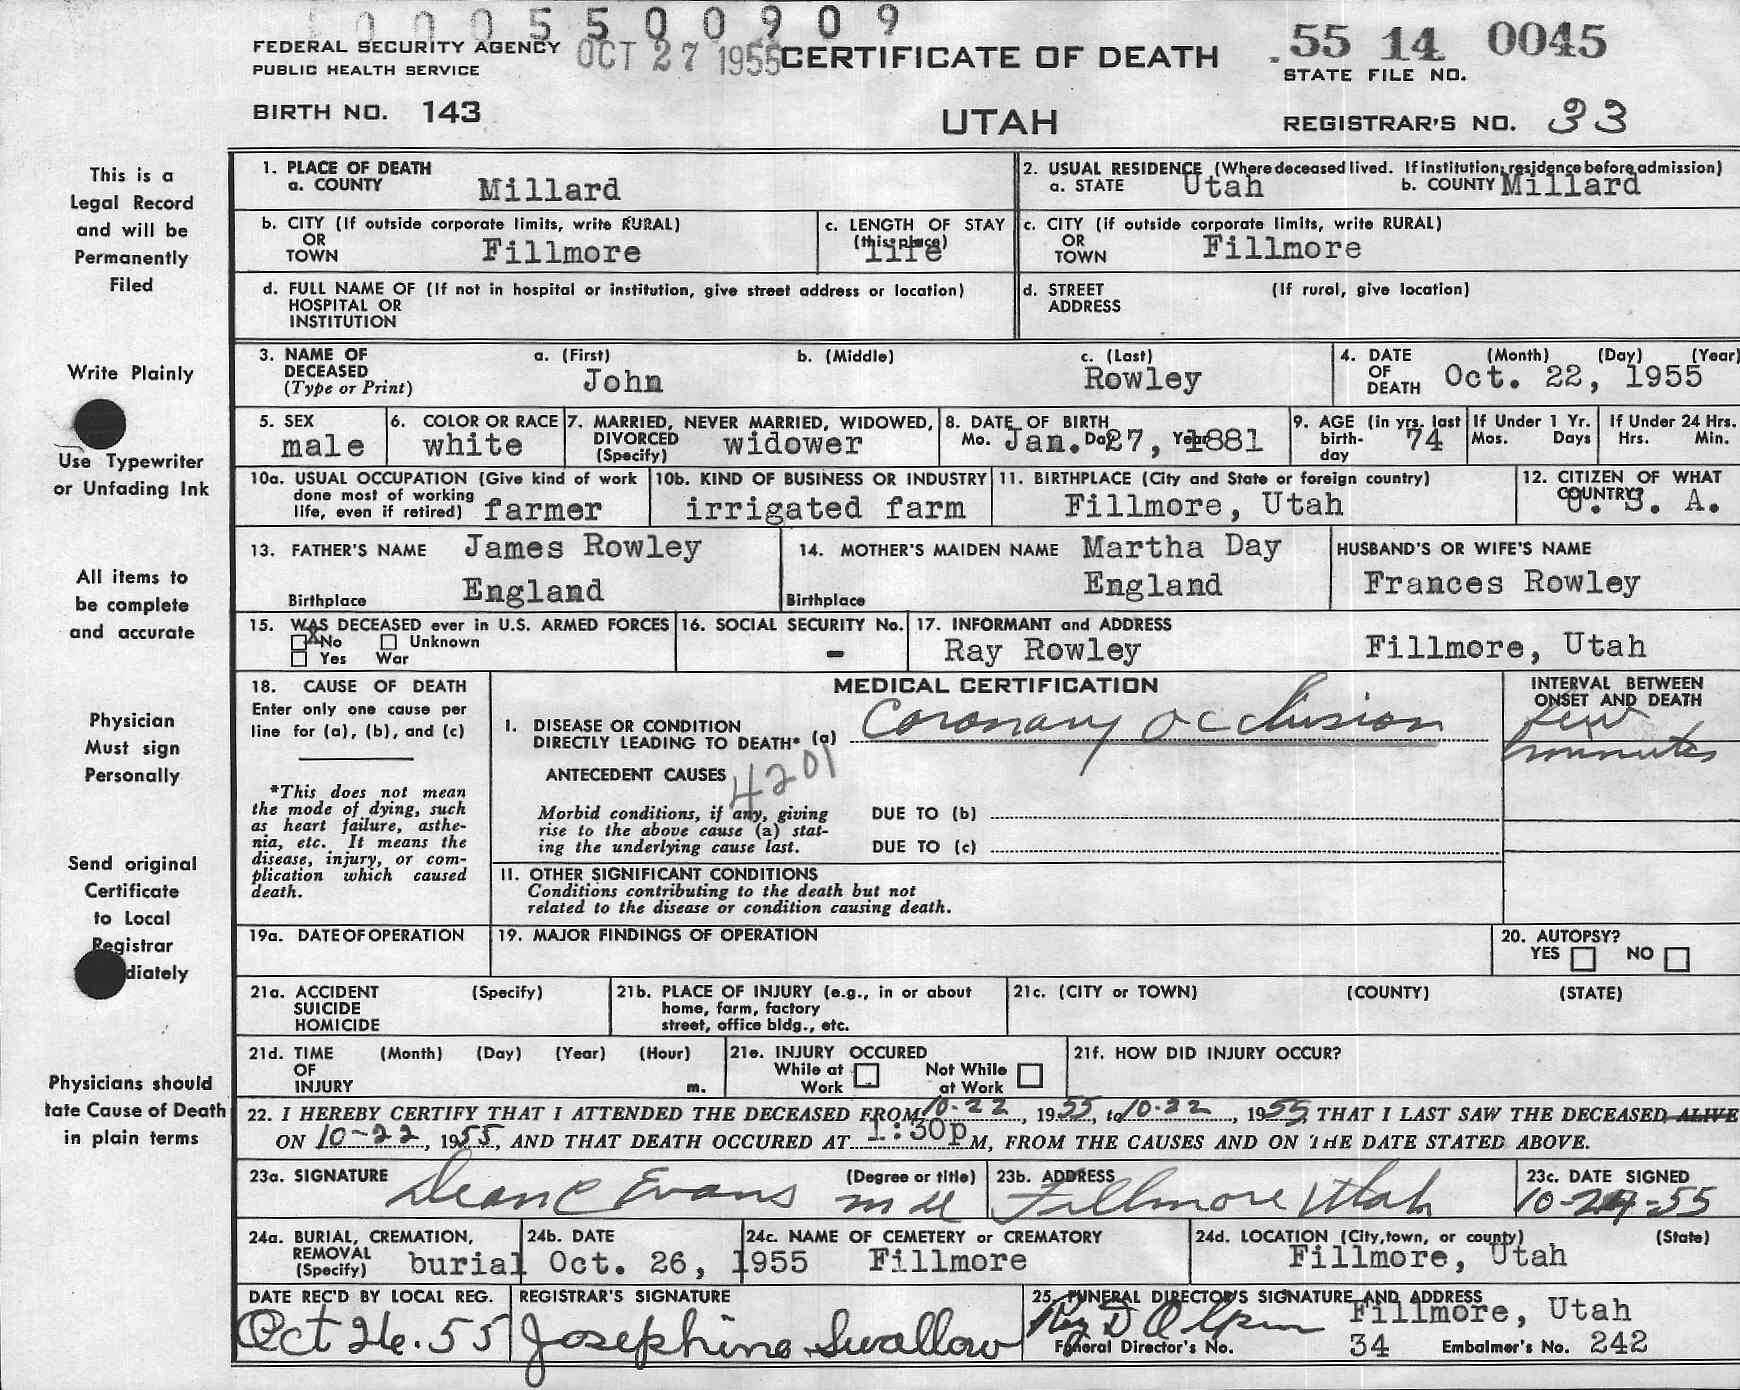 0005500909
FEDERAL SECURITY AGENCY
PUBLIC HEALTH SERVICE
OCT 27 1955
CERTIFICATE OF DEATH
55 14 0045
STATE FILE NO.
BIRTH NO. 143
UTAH
REGISTRAR'S NO. 33
This is a
Legal Record
and will be
Permanently
Filed
Write Plainly
Use Typewriter
or Unfading Ink
All items to
be complete
and accurate
Physician
Must sign
Personally
Send original
Certificate
to Local
Registrar
diately
Physicians should
tate Cause of Death
in plain terms
1. PLACE OF DEATH
a. COUNTY Millard
2. USUAL RESIDENCE (Where deceased lived. If institution; residence before admission)
a. STATE Utah b. COUNTY Millard
b. CITY (If outside corporate limits, write RURAL)
OR
TOWN Fillmore
c. LENGTH OF STAY
(this place)
life
c. CITY (if outside corporate limits, write RURAL)
OR
TOWN Fillmore
d. FULL NAME OF (If not in hospital or institution, give street address or location)
HOSPITAL OR
INSTITUTION
d. STREET (If rural, give location)
ADDRESS
3. NAME OF a. (First) b. (Middle) c. (Last)
DECEASED
(Type or Print) John Rowley
4. DATE (Month) (Day) (Year)
OF
DEATH Oct. 22, 1955
5. SEX
male
6. COLOR OR RACE
white
7. MARRIED, NEVER MARRIED, WIDOWED,
DIVORCED
(Specify) widower
8. DATE OF BIRTH
Mo. Jan. Day 27, Year 1881
9. AGE (in yrs. last
birth-
day 74
If Under 1 Yr.
Mos. Days
If Under 24 Hrs.
Hrs. Min.
10a. USUAL OCCUPATION (Give kind of work
done most of working
life, even if retired) farmer
10b. KIND OF BUSINESS OR INDUSTRY
irrigated farm
11. BIRTHPLACE (City and State or foreign country)
Fillmore, Utah
12. CITIZEN OF WHAT
COUNTRY?
U. S. A.
13. FATHER'S NAME James Rowley
Birthplace England
14. MOTHER'S MAIDEN NAME Martha Day
Birthplace England
HUSBAND'S OR WIFE'S NAME
Frances Rowley
15. WAS DECEASED ever in U.S. ARMED FORCES
X No Unknown
Yes War
16. SOCIAL SECURITY No.
-
17. INFORMANT and ADDRESS
Ray Rowley Fillmore, Utah
18. CAUSE OF DEATH
Enter only one cause per
line for (a), (b), and (c)
*This does not mean
the mode of dying, such
as heart failure, asthe-
nia, etc. It means the
disease, injury, or com-
plication which caused
death.
MEDICAL CERTIFICATION
I. DISEASE OR CONDITION
DIRECTLY LEADING TO DEATH* (a) Coronary occlusion
ANTECEDENT CAUSES 4201
Morbid conditions, if any, giving
rise to the above cause (a) stat-
ing the underlying cause last.
DUE TO (b)
DUE TO (c)
II. OTHER SIGNIFICANT CONDITIONS
Conditions contributing to the death but not
related to the disease or condition causing death.
INTERVAL BETWEEN
ONSET AND DEATH
few
minutes
19a. DATE OF OPERATION
19. MAJOR FINDINGS OF OPERATION
20. AUTOPSY?
YES NO
21a. ACCIDENT (Specify)
SUICIDE
HOMICIDE
21b. PLACE OF INJURY (e.g., in or about
home, farm, factory
street, office bldg., etc.
21c. (CITY or TOWN) (COUNTY) (STATE)
21d. TIME (Month) (Day) (Year) (Hour)
OF
INJURY m.
21e. INJURY OCCURED
While at Work
Not While at Work
21f. HOW DID INJURY OCCUR?
22. I HEREBY CERTIFY THAT I ATTENDED THE DECEASED FROM 10-22, 1955, to 10-22, 1955, THAT I LAST SAW THE DECEASED ALIVE
ON 10-22, 1955, AND THAT DEATH OCCURED AT 1:30p M, FROM THE CAUSES AND ON THE DATE STATED ABOVE.
23a. SIGNATURE (Degree or title)
Dean C Evans M D
23b. ADDRESS
Fillmore Utah
23c. DATE SIGNED
10-24-55
24a. BURIAL, CREMATION,
REMOVAL
(Specify) burial
24b. DATE
Oct. 26, 1955
24c. NAME OF CEMETERY or CREMATORY
Fillmore
24d. LOCATION (City, town, or county) (State)
Fillmore, Utah
DATE REC'D BY LOCAL REG.
Oct 26.55
REGISTRAR'S SIGNATURE
Josephine Swallow
25. FUNERAL DIRECTOR'S SIGNATURE AND ADDRESS
Fillmore, Utah
Funeral Director's No. 34 Embalmer's No. 242